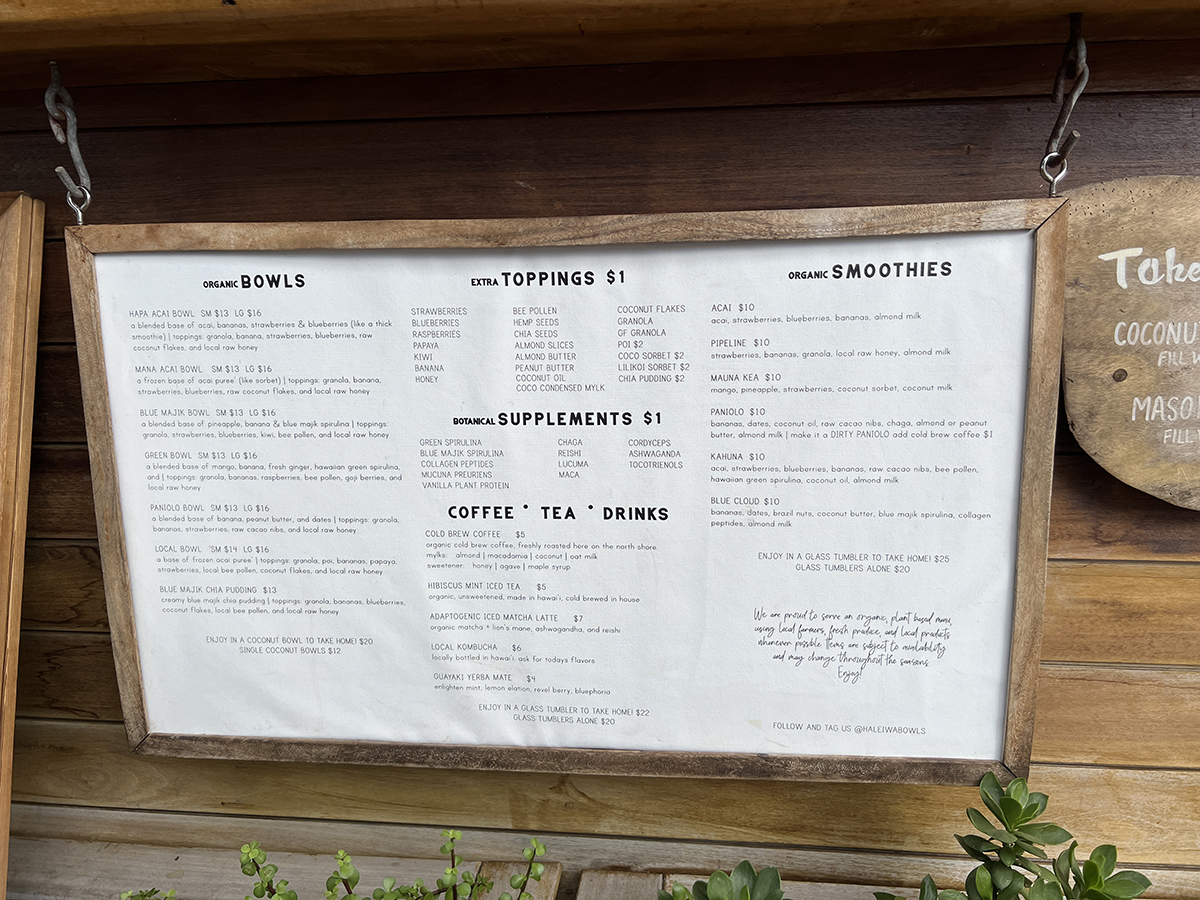 ORGANIC BOWLS
HAPA ACAI BOWL SM $13 LG $16
a blended base of acai, bananas, strawberries & blueberries (like a thick
smoothie) | toppings: granola, banana, strawberries, blueberries, raw
coconut flakes, and local raw honey
MANA ACAI BOWL SM $13 LG $16
a frozen base of acai puree' (like sorbet) | toppings: granola, banana,
strawberries, blueberries, raw coconut flakes, and local raw honey
BLUE MAJIK BOWL SM $13 LG $16
a blended base of pineapple, banana & blue majik spirulina | toppings:
granola, strawberries, blueberries, kiwi, bee pollen, and local raw honey
GREEN BOWL SM $13 LG $16
a blended base of mango, banana, fresh ginger, hawaiian green spirulina,
and | toppings: granola, bananas, raspberries, bee pollen, goji berries, and
local raw honey
PANIOLO BOWL SM $13 LG $16
a blended base of banana, peanut butter, and dates | toppings: granola,
bananas, strawberries, raw cacao nibs, and local raw honey
LOCAL BOWL SM $14 LG $16
a base of frozen acai puree' | toppings: granola, poi, bananas, papaya,
strawberries, local bee pollen, coconut flakes, and local raw honey
BLUE MAJIK CHIA PUDDING $13
creamy blue majik chia pudding | toppings: granola, bananas, blueberries,
coconut flakes, local bee pollen, and local raw honey
ENJOY IN A COCONUT BOWL TO TAKE HOME! $20
SINGLE COCONUT BOWLS $12
EXTRA TOPPINGS $1
STRAWBERRIES
BLUEBERRIES
RASPBERRIES
PAPAYA
KIWI
BANANA
HONEY
BEE POLLEN
HEMP SEEDS
CHIA SEEDS
ALMOND SLICES
ALMOND BUTTER
PEANUT BUTTER
COCONUT OIL
COCO CONDENSED MYLK
COCONUT FLAKES
GRANOLA
GF GRANOLA
POI $2
COCO SORBET $2
LILIKOI SORBET $2
CHIA PUDDING $2
BOTANICAL SUPPLEMENTS $1
GREEN SPIRULINA
BLUE MAJIK SPIRULINA
COLLAGEN PEPTIDES
MUCUNA PREURIENS
VANILLA PLANT PROTEIN
CHAGA
REISHI
LUCUMA
MACA
CORDYCEPS
ASHWAGANDA
TOCOTRIENOLS
COFFEE * TEA * DRINKS
COLD BREW COFFEE $5
organic cold brew coffee, freshly roasted here on the north shore
mylks: almond | macadamia | coconut | oat milk
sweetener: honey | agave | maple syrup
HIBISCUS MINT ICED TEA $5
organic, unsweetened, made in hawai'i, cold brewed in house
ADAPTOGENIC ICED MATCHA LATTE $7
organic matcha + lion's mane, ashwagandha, and reishi
LOCAL KOMBUCHA $6
locally bottled in hawai'i. ask for todays flavors
GUAYAKI YERBA MATE $4
enlighten mint, lemon elation, revel berry, bluephoria
ENJOY IN A GLASS TUMBLER TO TAKE HOME! $22
GLASS TUMBLERS ALONE $20
ORGANIC SMOOTHIES
ACAI $10
acai, strawberries, blueberries, bananas, almond milk
PIPELINE $10
strawberries, bananas, granola, local raw honey, almond milk
MAUNA KEA $10
mango, pineapple, strawberries, coconut sorbet, coconut milk
PANIOLO $10
bananas, dates, coconut oil, raw cacao nibs, chaga, almond or peanut
butter, almond milk | make it a DIRTY PANIOLO add cold brew coffee $1
KAHUNA $10
acai, strawberries, blueberries, bananas, raw cacao nibs, bee pollen,
hawaiian green spirulina, coconut oil, almond milk
BLUE CLOUD $10
bananas, dates, brazil nuts, coconut butter, blue majik spirulina, collagen
peptides, almond milk
ENJOY IN A GLASS TUMBLER TO TAKE HOME! $25
GLASS TUMBLERS ALONE $20
We are proud to serve an organic, plant based menu,
using local farmers, fresh produce, and local products
whenever possible. Items are subject to availability
and may change throughout the seasons.
Enjoy!
FOLLOW AND TAG US @HALEIWABOWLS
Take
COCONU
FILL
MASO
FILL